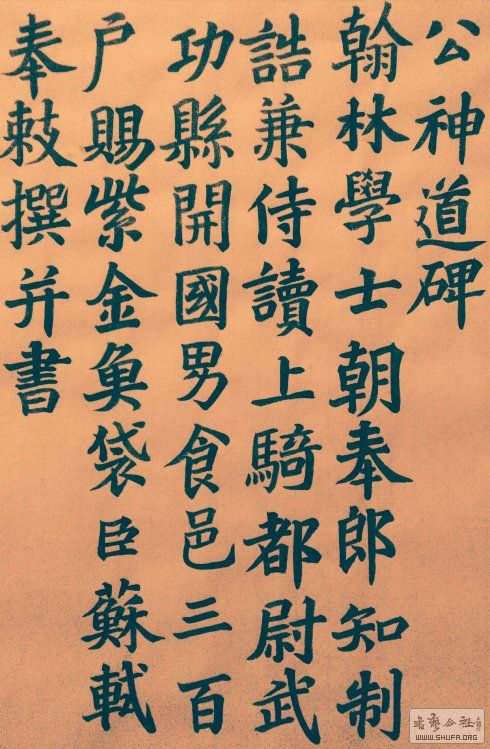 公神道碑
翰林學士朝奉郎知制
誥兼侍讀上騎都尉武
功縣開國男食邑三百
户賜紫金魚袋臣蘇軾
奉敕撰并書
WWW.SHUFA.ORG